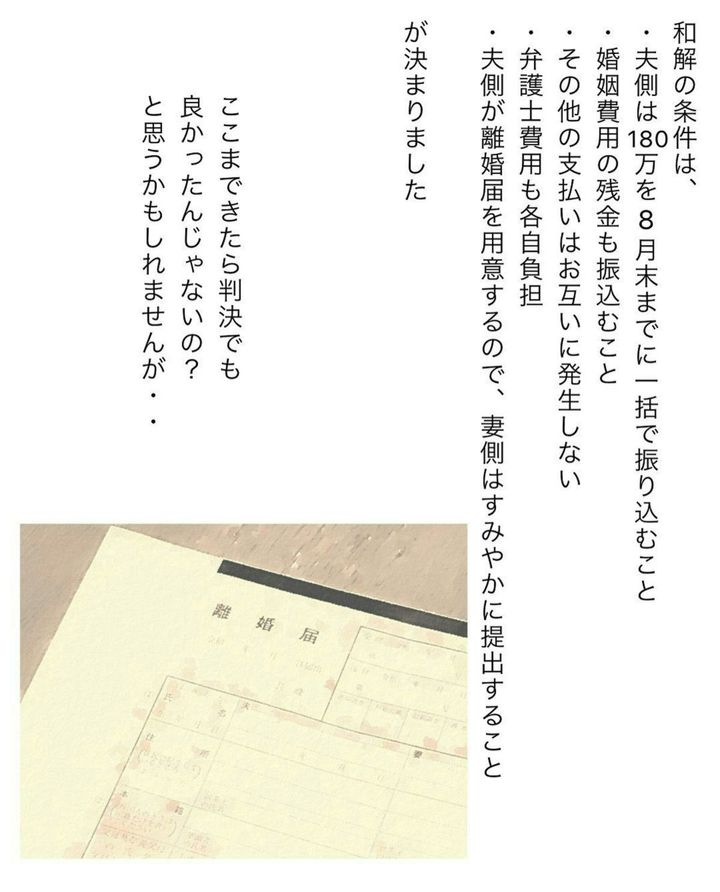 和解の条件は、
・夫側は180万を8月末までに一括で振り込むこと
・婚姻費用の残金も振込むこと
・その他の支払いはお互いに発生しない
・弁護士費用も各自負担
・夫側が離婚届を用意するので、妻側はすみやかに提出すること
が決まりました
ここまできたら判決でも
良かったんじゃないの？
と思うかもしれませんが・・
離婚届
氏名
夫
妻
住所
本籍